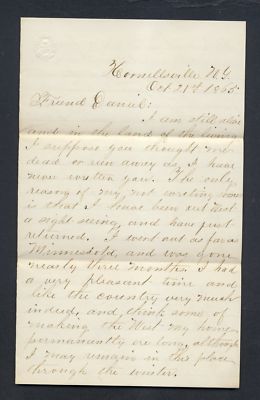 Hornellsville N.Y.
Oct. 21st 1865
Friend Daniel:
I am still alive
and in the land of the living
I suppose you thought me
dead or run away as I have
never written you. The only
reason of my not writing you
is that I have been out West
a sight seeing, and have just
returned. I went out as far as
Minnesota, and was gone
nearly three months. I had
a very pleasant time and
like the country very much
indeed, and think some of
making the West my home
permanently ere long, although
I may remain in this place
through the winter.